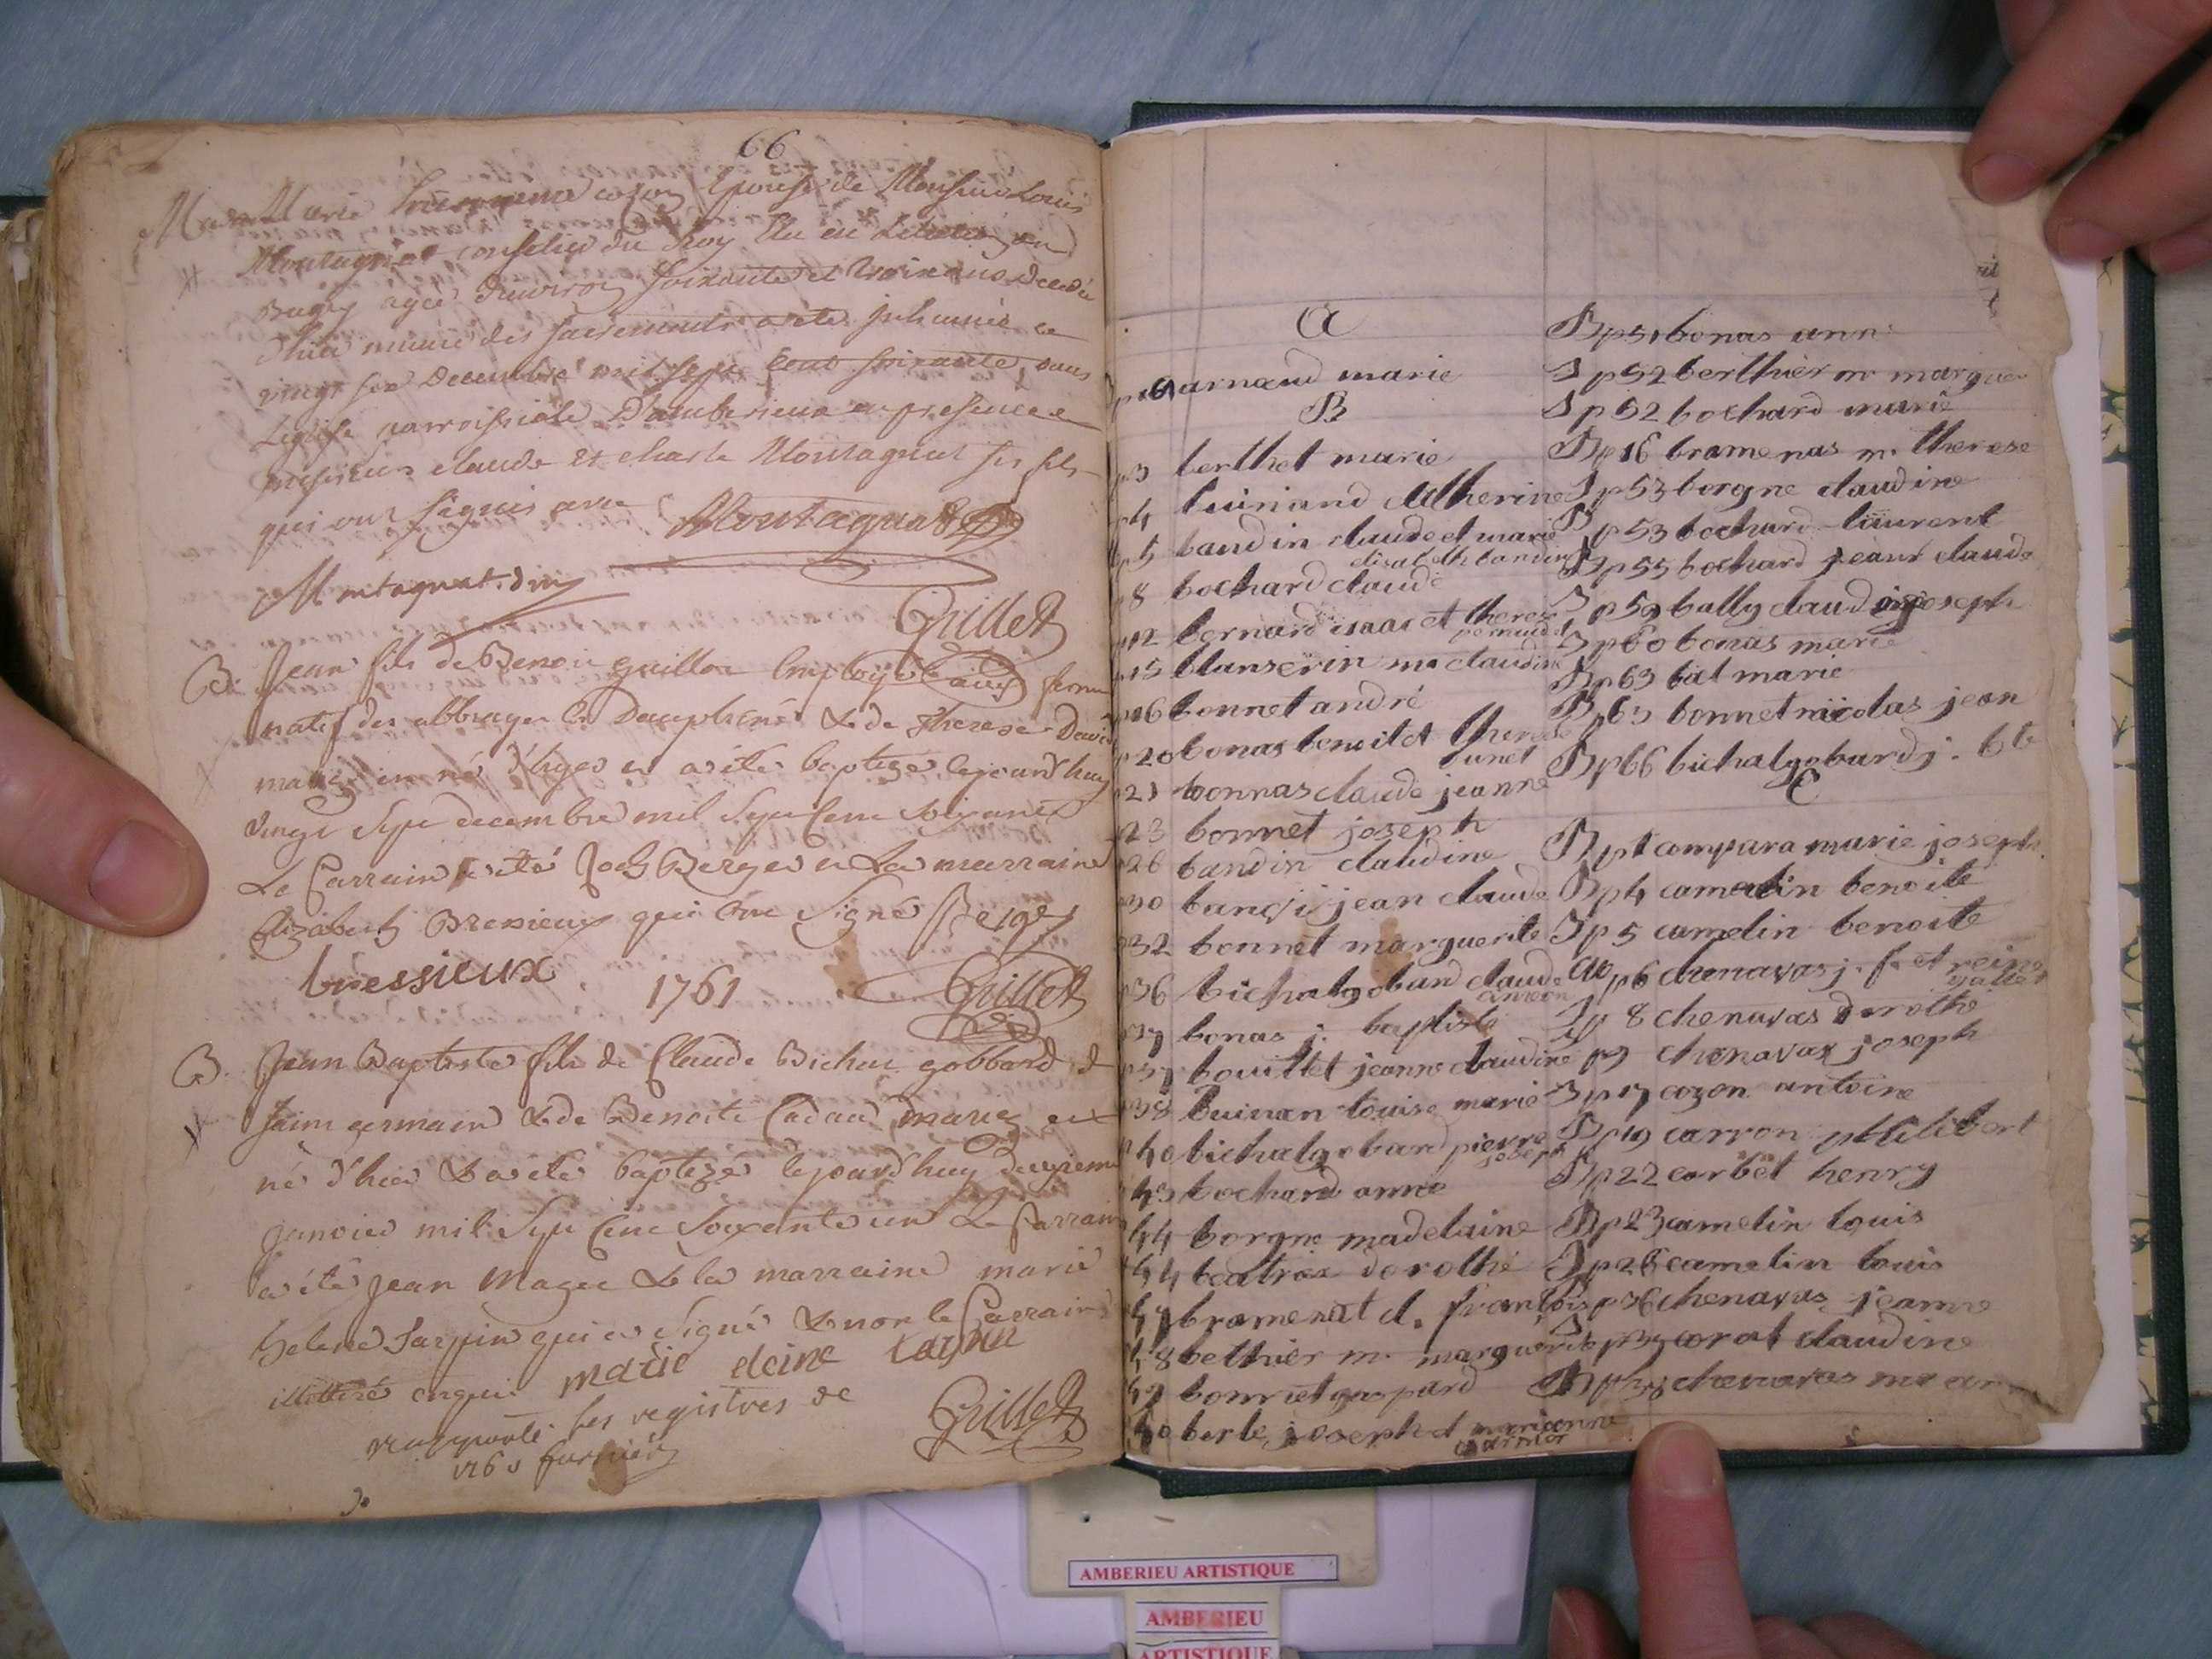 66
Marie cozon Epouse de Monsieur Louis
Montagnat conseiller du Roy Elu en Lelection du
Bugey agée denviron soixante et trois ans decedée
d'hier munie des sacrements a eté inhumée ce
vingt six Decembre mil sept cent soixante, dans
Leglise parroissiale D'amberieux en presence de
messieurs claude et charle Montagnat ses fils
qui ont signés avec Montagnat
Montagnat
Grillet
B. Jean fils de Benoit guillon Employé aux fermes
natif des abbrayes en Dauphiné & de Therese David
mariez en né d'hyer et a été baptizé lejourd'huy
vingt Sept decembre mil Sept Cent Soixante
Le Parrain a été Berger et La marraine
Elizabeth Bressieux qui ont Signé Berger
bressieux
1761
Grillet
B. Jean Baptiste fils de Claude Bichat gobbard d
Saint germain & de Benoite mariez est
né d'hier & a été baptizé lejourd'huy deuxieme
Janvier mil Sept Cent Soixante un Le Parrain
a été Jean Magee & la marraine marie
helene Sarpin qui a Signé & non le Parrain
illettéré enquis
les registres de
Grillet
A
arnaud marie
B
p3 berthet marie
p4
p5 baudin claude et marie
elisabeth baudin
p8 bochard claude
p12 bernard isaac et therese
p15 blanserin m claudine
p16 bonnet andré
p20 bonas benoit et therese
brunet
p21 bonnas claude jeanne
p23 bonnet joseph
p26 baudin claudine
p30 jean claude
p32 bonnet marguerite
p36 bichatgobard claude
p37 bonas j. baptiste
p37 bouillet jeanne claudine
p38 buinan louise marie
p40 bichatgobard pierre
joseph
43 bochard anne
44 borgne madelaine
44 beatrix dorothé
47 bramenat d. françois
48 bethier m. marguerite
49 bonnet gaspard
50 berle joseph et marieanne
B p51 bonas anne
p52 berthier m marguer
p52 bochard marie
B p16 bramenas m. therese
p53 borgne claudine
B p53 bochard laurent
B p55 bochard jean claude
p59 bally claud joseph
B p60 bonas marie
B p63 bal marie
B p63 bonnet nicolas jean
B p66 bichatgobard j. bte
C
B p1 compara marie joseph
B p4 camelin benoite
p5 camelin benoite
p6 chenavas j. f. et reine
gallet
p8 chenavas dorothé
p9 chenavax joseph
p17 cozon antoine
B p19 carron philibert
B p22 corbet henry
B p23 camelin louis
p26 camelin louis
p36 chenavas jeanne
p37 corat claudine
B p38 chenavas
AMBERIEU ARTISTIQUE
AMBERIEU
ARTISTIQUE